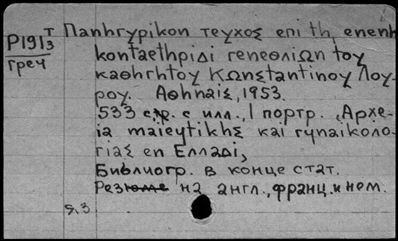 т Πανηγυρικον τευχος επι τη ενενη
Р1913 κονταετηριδι γενεθλιων του
греч καθηγητου Κωνσταντινου Λου-
ρου. Αθηναις, 1953.
533 с.р. с илл., 1 портр. „Αρχε-
ία μαιευτικης και γυναικολο-
γιας εν Ελλαδι,
Библиогр. в конце стат.
Резюме на англ., франц. и нем.
я.з